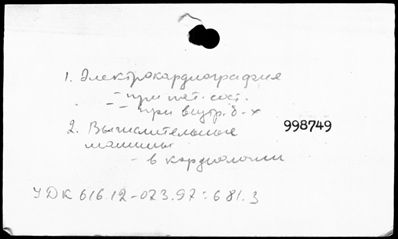 1. Электрокардиография
- при пат. сост.
- - при внутр. б-х
2. Вычислительные
машины
998749
- в кардиологии
УДК 616.12-073.97:681.3